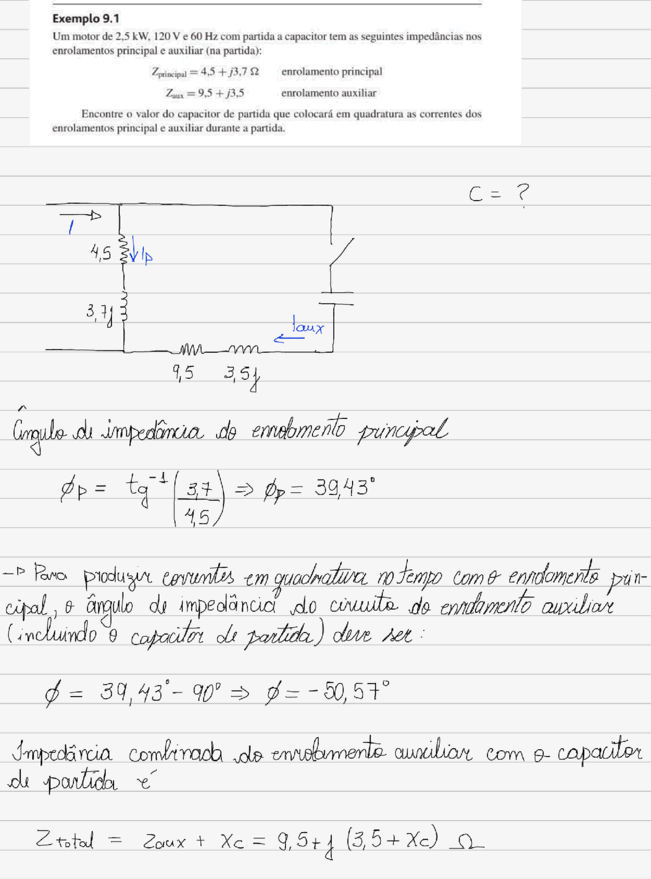 Exemplo 9.1
Um motor de 2,5 kW, 120 V e 60 Hz com partida a capacitor tem as seguintes impedâncias nos
enrolamentos principal e auxiliar (na partida):
Zprincipal = 4,5 + j3,7 Ω enrolamento principal
Zaux = 9,5 + j3,5 enrolamento auxiliar
Encontre o valor do capacitor de partida que colocará em quadratura as correntes dos
enrolamentos principal e auxiliar durante a partida.
C = ?
I
4,5
Ip
3,7j
Iaux
9,5 3,5j
Ângulo de impedância do enrolamento principal
ϕp = tg⁻¹(3,7/4,5) ⇒ ϕp = 39,43°
→ Para produzir correntes em quadratura no tempo com o enrolamento prin-
cipal, o ângulo de impedância do circuito do enrolamento auxiliar
(incluindo o capacitor de partida) deve ser:
ϕ = 39,43° - 90° ⇒ ϕ = -50,57°
Impedância combinada do enrolamento auxiliar com o capacitor
de partida é
Ztotal = Zaux + Xc = 9,5 + j (3,5 + Xc) Ω